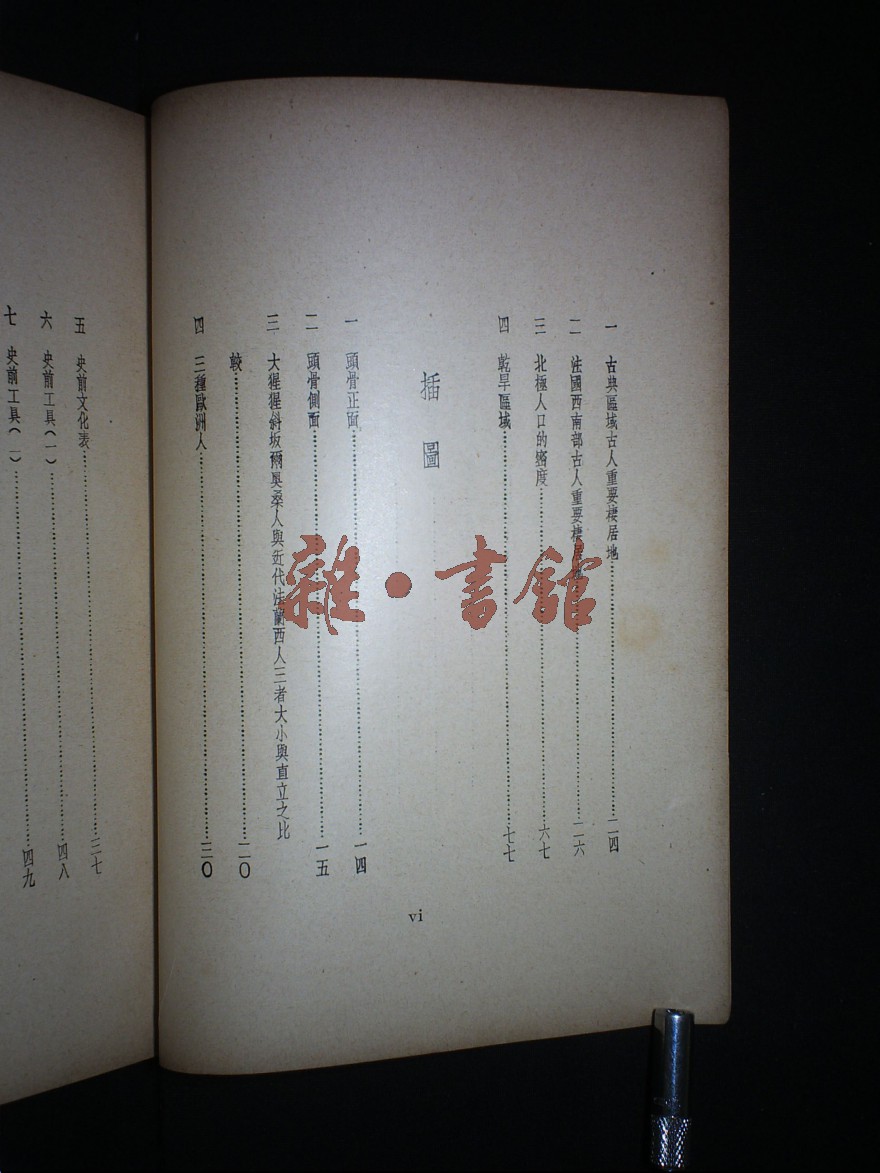 一 古典區域古人重要棲居地……二四
二 法國西南部古人重要棲居地……二六
三 北極人口的密度……六七
四 乾旱區域……七七
插圖
一 頭骨正面……一四
二 頭骨側面……一五
三 大猩猩斜坂爾與桑人與近代法蘭西人三者大小與直立之比
較……二〇
四 三種歐洲人……三〇
vi
五 史前文化表……三七
六 史前工具(一)……四八
七 史前工具(一)……四九
雜·書館